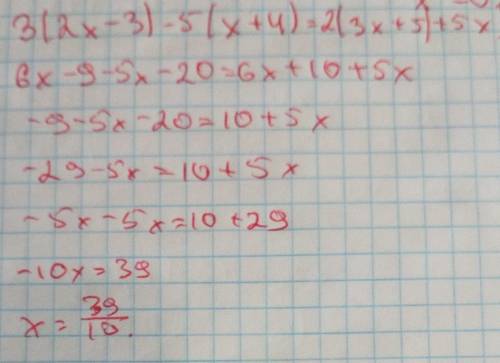 3(2x-3)-5(x+4)=2(3x+5)+5x
6x-9-5x-20=6x+10+5x
-9-5x-20=10+5x
-29-5x=10+5x
-5x-5x=10+29
-10x=39
x=39/10.